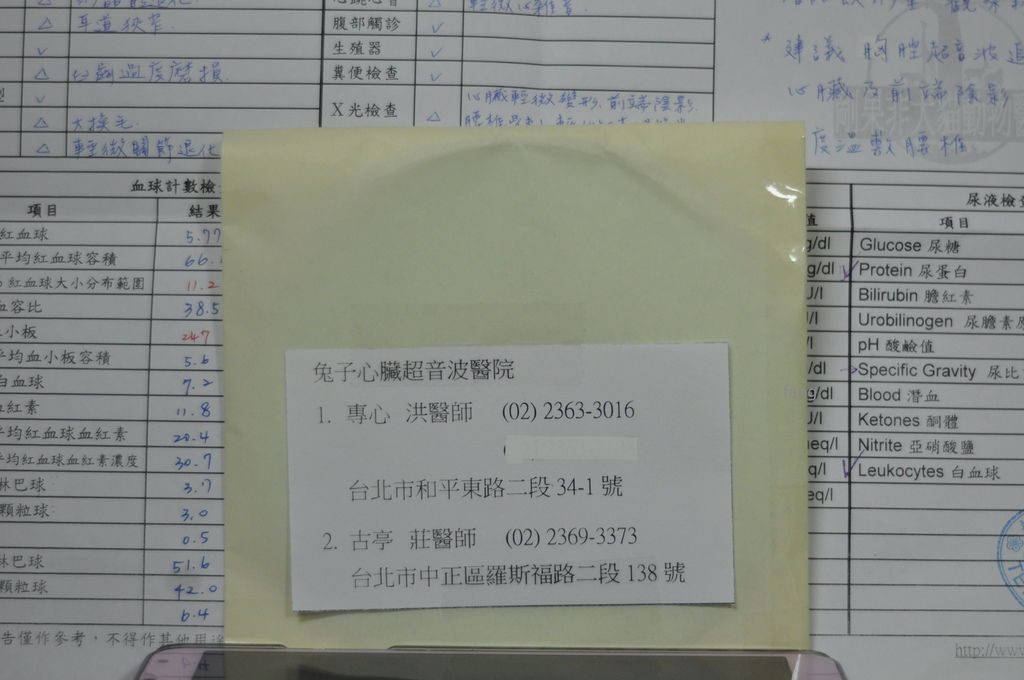 耳道狹窄
臼齒過度磨損
大換毛
輕微關節退化
腹部觸診
生殖器
糞便檢查
X光檢查
心臟輕微變形.前端陰影.
* 建議胸腔超音波追
心臟及前端陰影
度溫敷腰椎
血球計數檢
項目 結果
紅血球 5.77
平均紅血球容積 66.
紅血球大小分布範圍 11.2
血容比 38.5
小板 247
平均血小板容積 5.6
白血球 7.2
血紅素 11.8
平均紅血球血紅素 20.4
平均紅血球血紅素濃度 30.7
淋巴球 3.7
顆粒球 3.0
0.5
淋巴球 51.6
顆粒球 42.0
6.4
告僅作參考,不得作其他用途
兔子心臟超音波醫院
1. 專心 洪醫師 (02) 2363-3016
台北市和平東路二段 34-1 號
2. 古亭 莊醫師 (02) 2369-3373
台北市中正區羅斯福路二段 138 號
尿液檢
值 項目
g/dl Glucose 尿糖
g/dl Protein 尿蛋白
U/l Bilirubin 膽紅素
Urobilinogen 尿膽素原
pH 酸鹼值
Specific Gravity 尿比
Blood 潛血
U/l Ketones 酮體
meq/l Nitrite 亞硝酸鹽
Leukocytes 白血球
eq/l
http://www